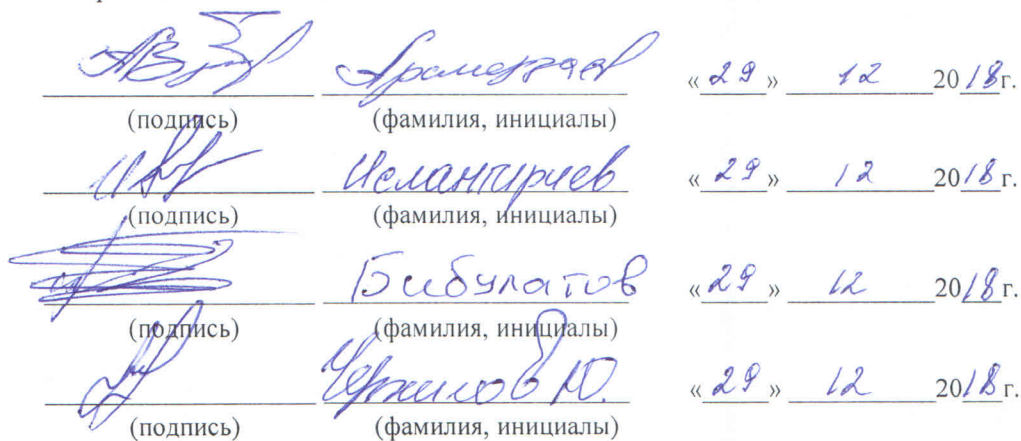 «29» 12 2018г.
(подпись) (фамилия, инициалы)
Исмангириев «29» 12 2018г.
(подпись) (фамилия, инициалы)
Бибулатов «29» 12 2018г.
(подпись) (фамилия, инициалы)
Ю. «29» 12 2018г.
(подпись) (фамилия, инициалы)